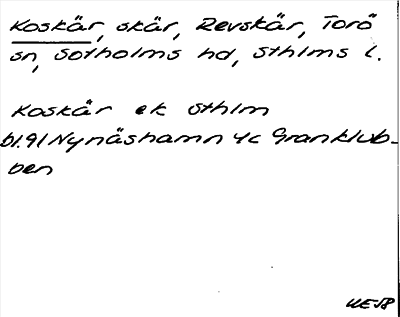 Koskär, skär, Revskär, Torö
sn, Sotholms hd, Sthlms l.
Koskär ek Sthlm
bl. 91 Nynäshamn 4c Granklub-
ben